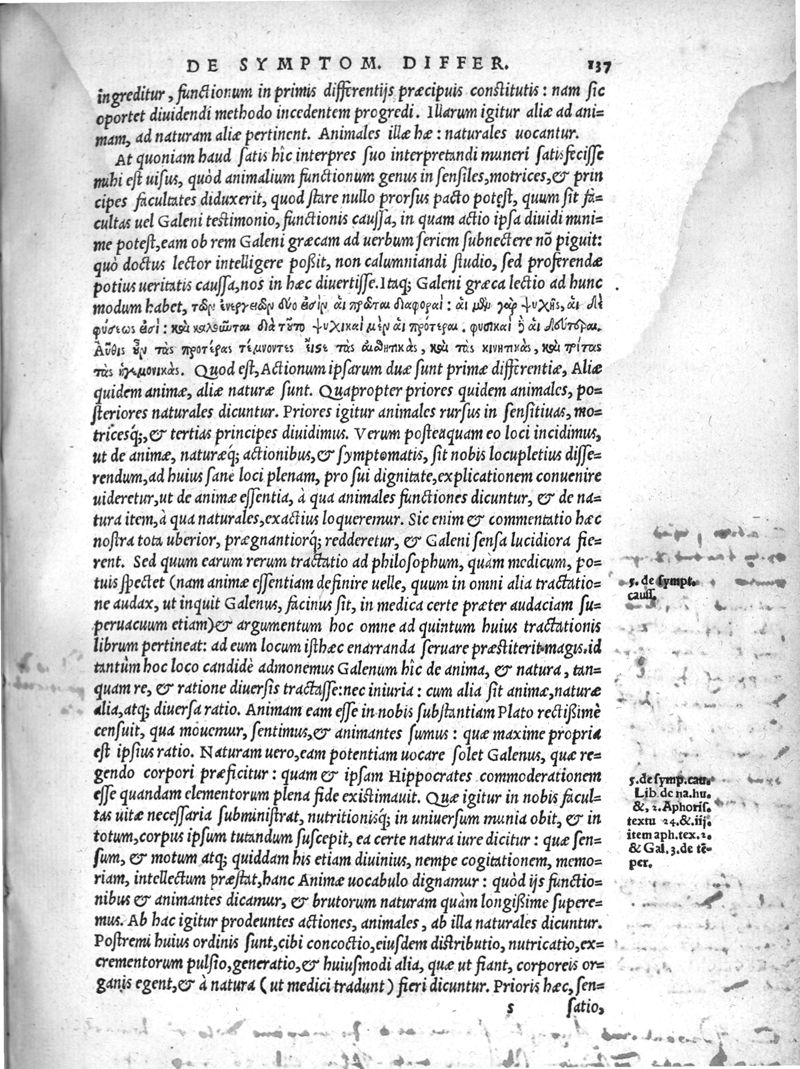 DE SYMPTOM. DIFFER. 137
ingreditur, functionum in primis differentijs præcipuis constitutis: nam sic
oportet diuidendi methodo incedentem progredi. Illarum igitur aliæ ad ani=
mam, ad naturam aliæ pertinent. Animales illæ hæ: naturales uocantur.
At quoniam haud satis hîc interpres suo interpretandi muneri satisfecisse
mihi est uisus, quòd animalium functionum genus in sensiles, motrices, & prin
cipes facultates diduxerit, quod stare nullo prorsus pacto potest, quum sit fa=
cultas uel Galeni testimonio, functionis caussa, in quam actio ipsa diuidi mini=
me potest, eam ob rem Galeni græcam ad uerbum seriem subnectere nõ piguit:
quò doctus lector intelligere poßit, non calumniandi studio, sed proferendæ
potius ueritatis caussa, nos in hæc diuertisse. Itaq; Galeni græca lectio ad hunc
modum habet, τῶν ἐνεργειῶν δύο εἰσὶν αἱ πρῶται διαφοραί: αἱ μὲν γὰρ ψυχῆς, αἱ δὲ
φύσεως εἰσί: καὶ καλοῦνται διὰ τοῦτο ψυχικαὶ μὲν αἱ πρότεραι. φυσικαὶ δὲ αἱ δεύτεραι.
Αὖθις οὖν τὰς προτέρας τέμνοντες εἴς τε τὰς αἰσθητικὰς, καὶ τὰς κινητικὰς, καὶ τρίτας
τὰς ἡγεμονικάς. Quod est, Actionum ipsarum duæ sunt primæ differentiæ, Aliæ
quidem animæ, aliæ naturæ sunt. Quapropter priores quidem animales, po=
steriores naturales dicuntur. Priores igitur animales rursus in sensitiuas, mo=
tricesq;, & tertias principes diuidimus. Verum posteaquam eo loci incidimus,
ut de animæ, naturæq; actionibus, & symptomatis, sit nobis locupletius disse=
rendum, ad huius sanè loci plenam, pro sui dignitate, explicationem conuenire
uideretur, ut de animæ essentia, à qua animales functiones dicuntur, & de na=
tura item, à qua naturales, exactius loqueremur. Sic enim & commentatio hæc
nostra tota uberior, prægnantiorq; redderetur, & Galeni sensa lucidiora fie=
rent. Sed quum earum rerum tractatio ad philosophum, quàm medicum, po=
tuis spectet (nam animæ essentiam definire uelle, quum in omni alia tractatio=
ne audax, ut inquit Galenus, facinus sit, in medica certe præter audaciam su=
peruacuum etiam) & argumentum hoc omne ad quintum huius tractationis
librum pertineat: ad eum locum isthæc enarranda seruare præstiterit magis. id
tantùm hoc loco candidè admonemus Galenum hîc de anima, & natura, tan=
quam re, & ratione diuersis tractasse: nec iniuria: cum alia sit animæ, naturæ
alia, atq; diuersa ratio. Animam eam esse in nobis substantiam Plato rectißimè
censuit, qua mouemur, sentimus, & animantes sumus: quæ maxime propria
est ipsius ratio. Naturam uero, eam potentiam uocare solet Galenus, quæ re=
gendo corpori præficitur: quam & ipsam Hippocrates commoderationem
esse quandam elementorum plena fide existimauit. Quæ igitur in nobis facul=
tas uitæ necessaria subministrat, nutritionisq; in uniuersum munia obit, & in
totum, corpus ipsum tutandum suscepit, ea certe natura iure dicitur: quæ sen=
sum, & motum atq; quiddam his etiam diuinius, nempe cogitationem, memo=
riam, intellectum præstat, hanc Animæ uocabulo dignamur: quòd ijs functio=
nibus & animantes dicamur, & brutorum naturam quàm longißime supere=
mus. Ab hac igitur prodeuntes actiones, animales, ab illa naturales dicuntur.
Postremi huius ordinis sunt, cibi concoctio, eiusdem distributio, nutricatio, ex=
crementorum pulsio, generatio, & huiusmodi alia, quæ ut fiant, corporeis or=
ganis egent, & à natura (ut medici tradunt) fieri dicuntur. Prioris hæc, sen=
s satio,
5. de sympt.
causs.
5. de symp. cau.
Lib. de na. hu.
&, 2. Aphoris.
textu 24. & iij.
item aph. tex. 2.
& Gal. 3. de tē=
per.